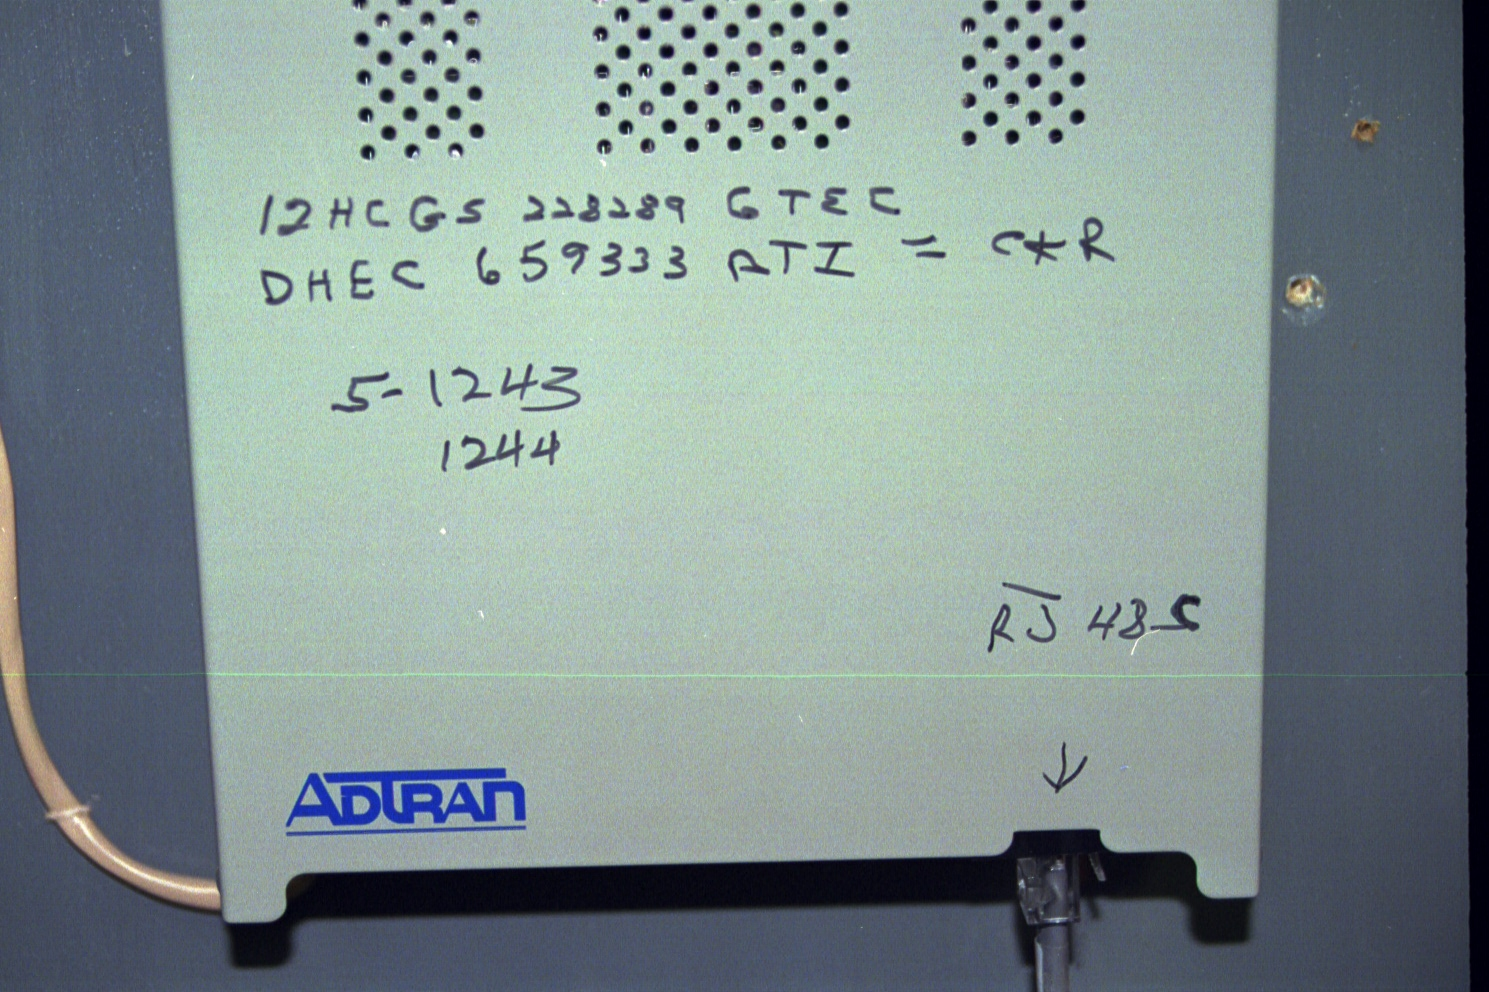 12HCGS 228289 GTEC
DHEC 659333 ATI = CKR
5-1243
1244
RJ 48S
ADTRAN